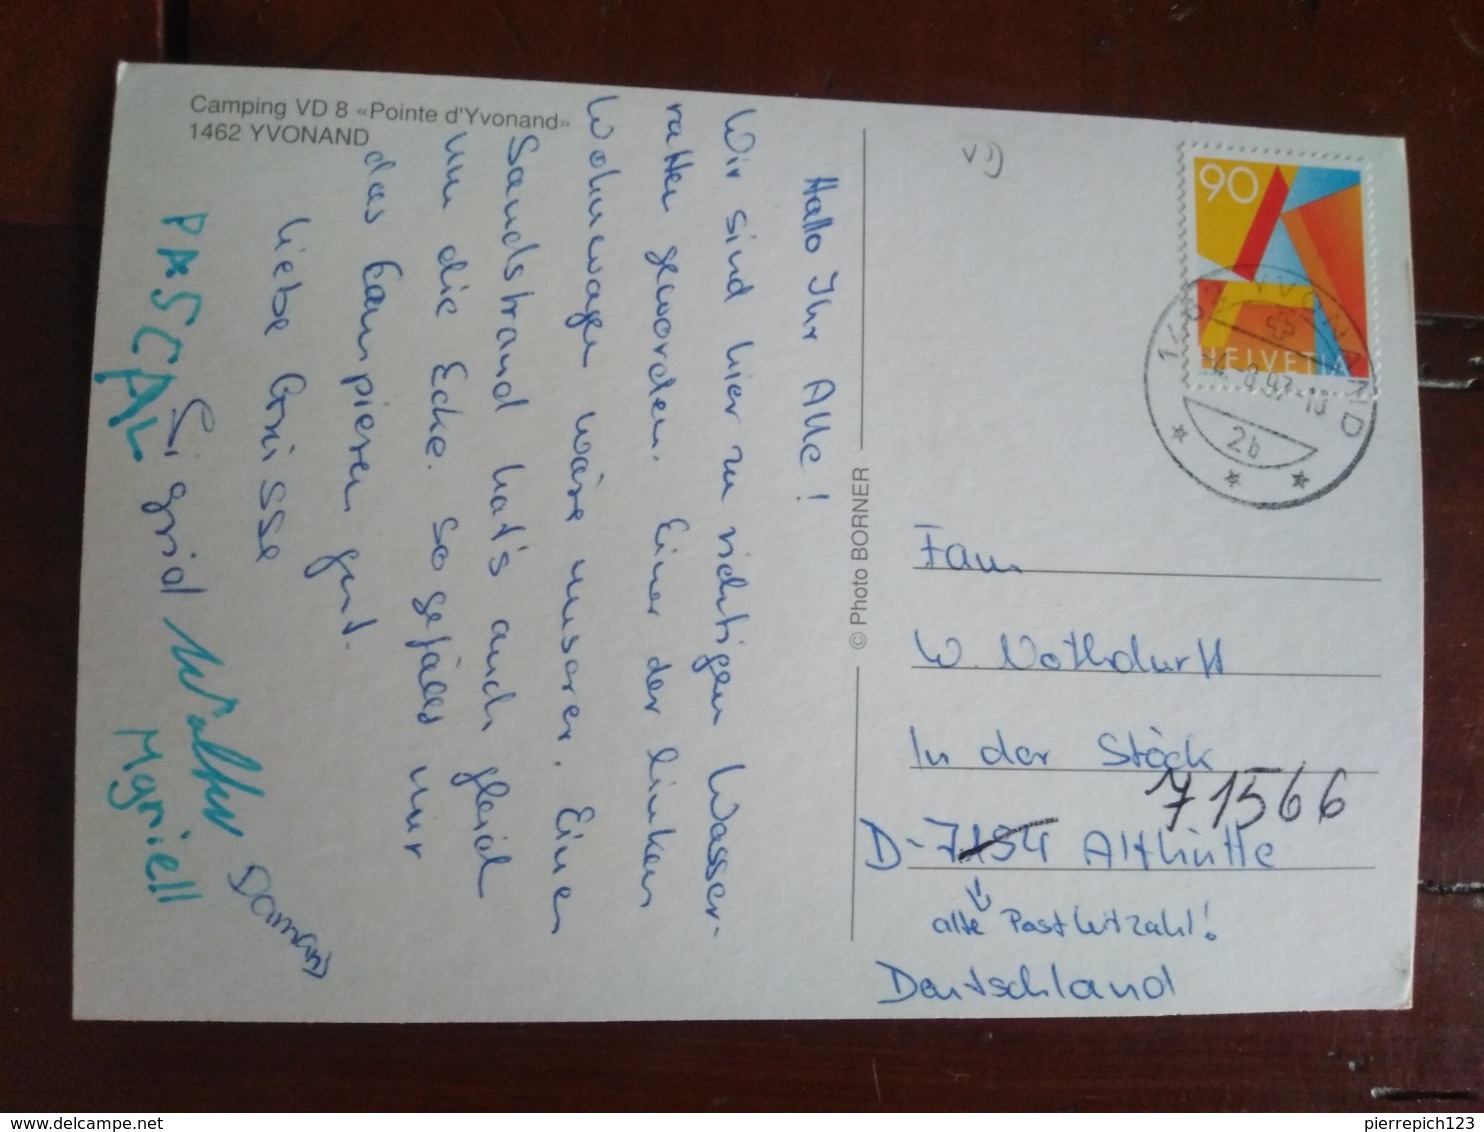 Camping VD 8 «Pointe d'Yvonand»
1462 YVONAND
Hallo Ihr Alle!
Wir sind hier zu richtigen Wasser-
ratten geworden. Einer der linken
Wohnwagen wäre unserer. Einen
Sandstrand hat's auch gleich
um die Ecke. So gefällt mir
das Campieren gut.
liebe Grüsse
Sigrid
PASCAL
Walter
Damaris
© Photo BORNER
90
HELVETIA
1462 YVONAND
2b
Fam
W. Nothdurft
In der Stöck
71566
D-7154 Althütte
alte Postleitzahl!
Deutschland
delcampe.net
pierrepich123